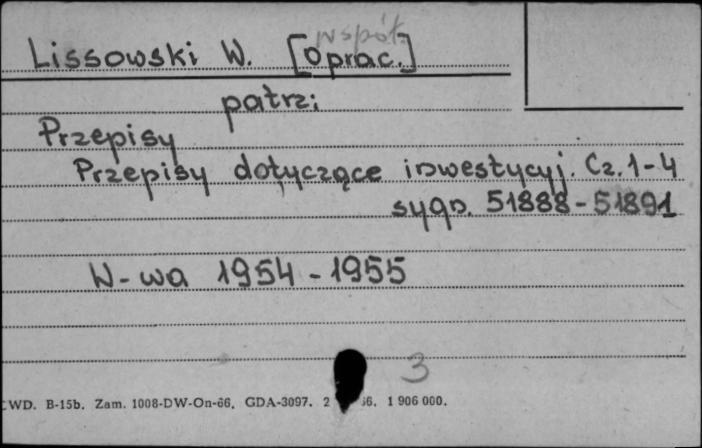 współ.
Lissowski W. [oprac.]
patrz:
Przepisy
Przepisy dotyczące inwestycyj. Cz. 1-4
sygn. 51888-51891
W-wa 1954-1955
3
WD. B-15b. Zam. 1008-DW-On-66. GDA-3097. 2 66. 1 906 000.